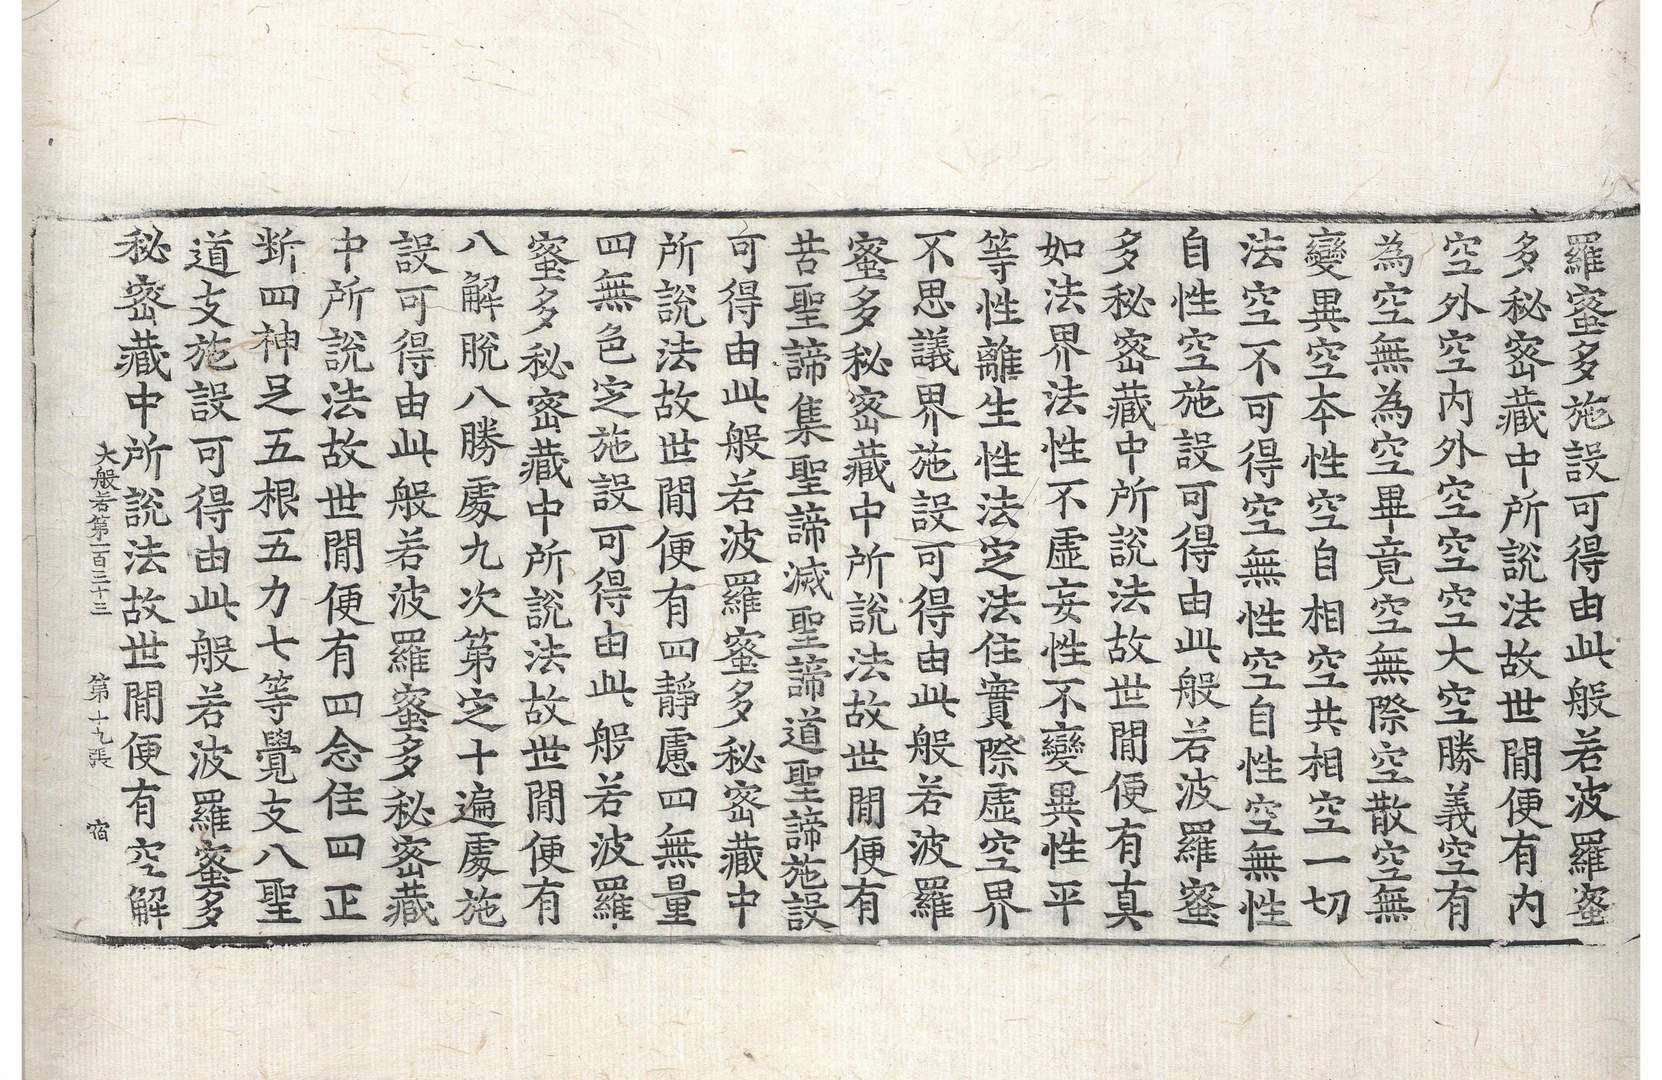 羅蜜多施設可得由此般若波羅蜜
多秘密藏中所說法故世間便有內
空外空內外空空空大空勝義空有
為空無為空畢竟空無際空散空無
變異空本性空自相空共相空一切
法空不可得空無性空自性空無性
自性空施設可得由此般若波羅蜜
多秘密藏中所說法故世間便有真
如法界法性不虛妄性不變異性平
等性離生性法定法住實際虛空界
不思議界施設可得由此般若波羅
蜜多秘密藏中所說法故世間便有
苦聖諦集聖諦滅聖諦道聖諦施設
可得由此般若波羅蜜多秘密藏中
所說法故世間便有四靜慮四無量
四無色定施設可得由此般若波羅
蜜多秘密藏中所說法故世間便有
八解脫八勝處九次第定十遍處施
設可得由此般若波羅蜜多秘密藏
中所說法故世間便有四念住四正
斷四神足五根五力七等覺支八聖
道支施設可得由此般若波羅蜜多
秘密藏中所說法故世間便有空解
大般若第一百三十三 第十九張 宿